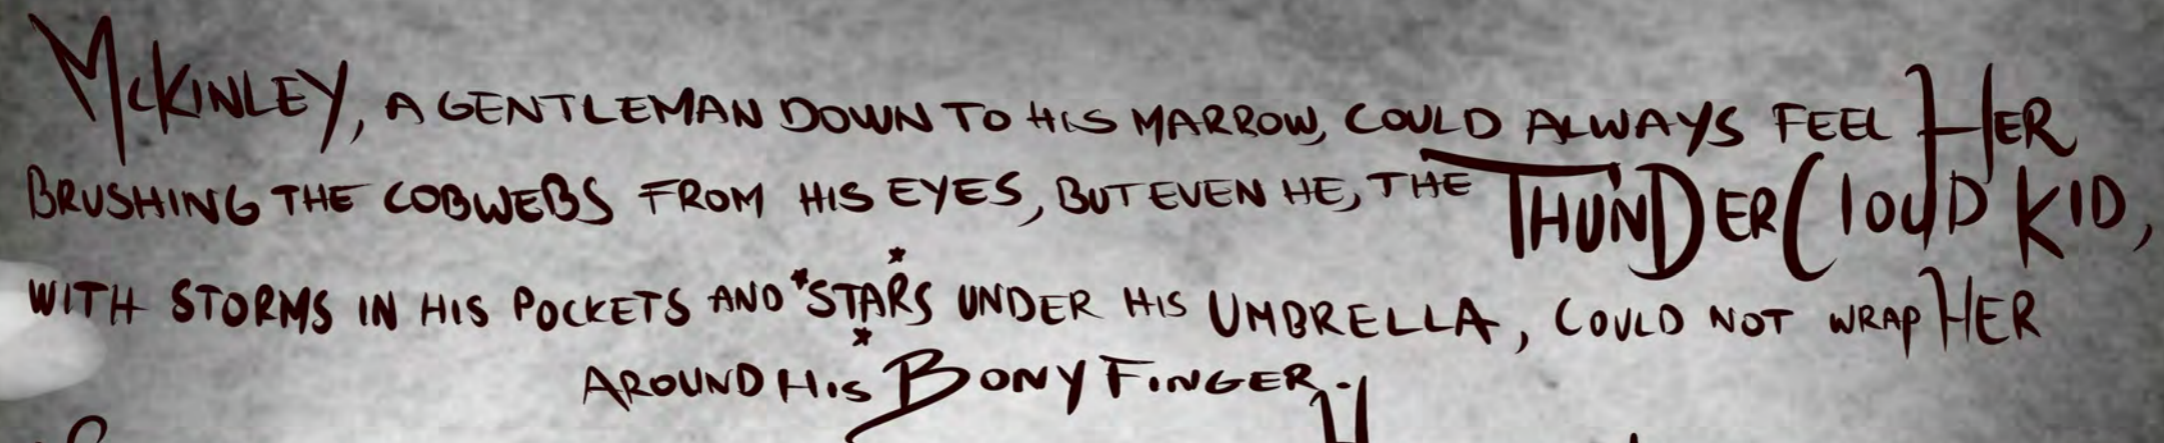 McKinley, a gentleman down to his marrow, could always feel Her
brushing the cobwebs from his eyes, but even he, the ThunderCloud Kid,
with storms in his pockets and *stars under his umbrella, could not wrap Her
around his Bony Finger.